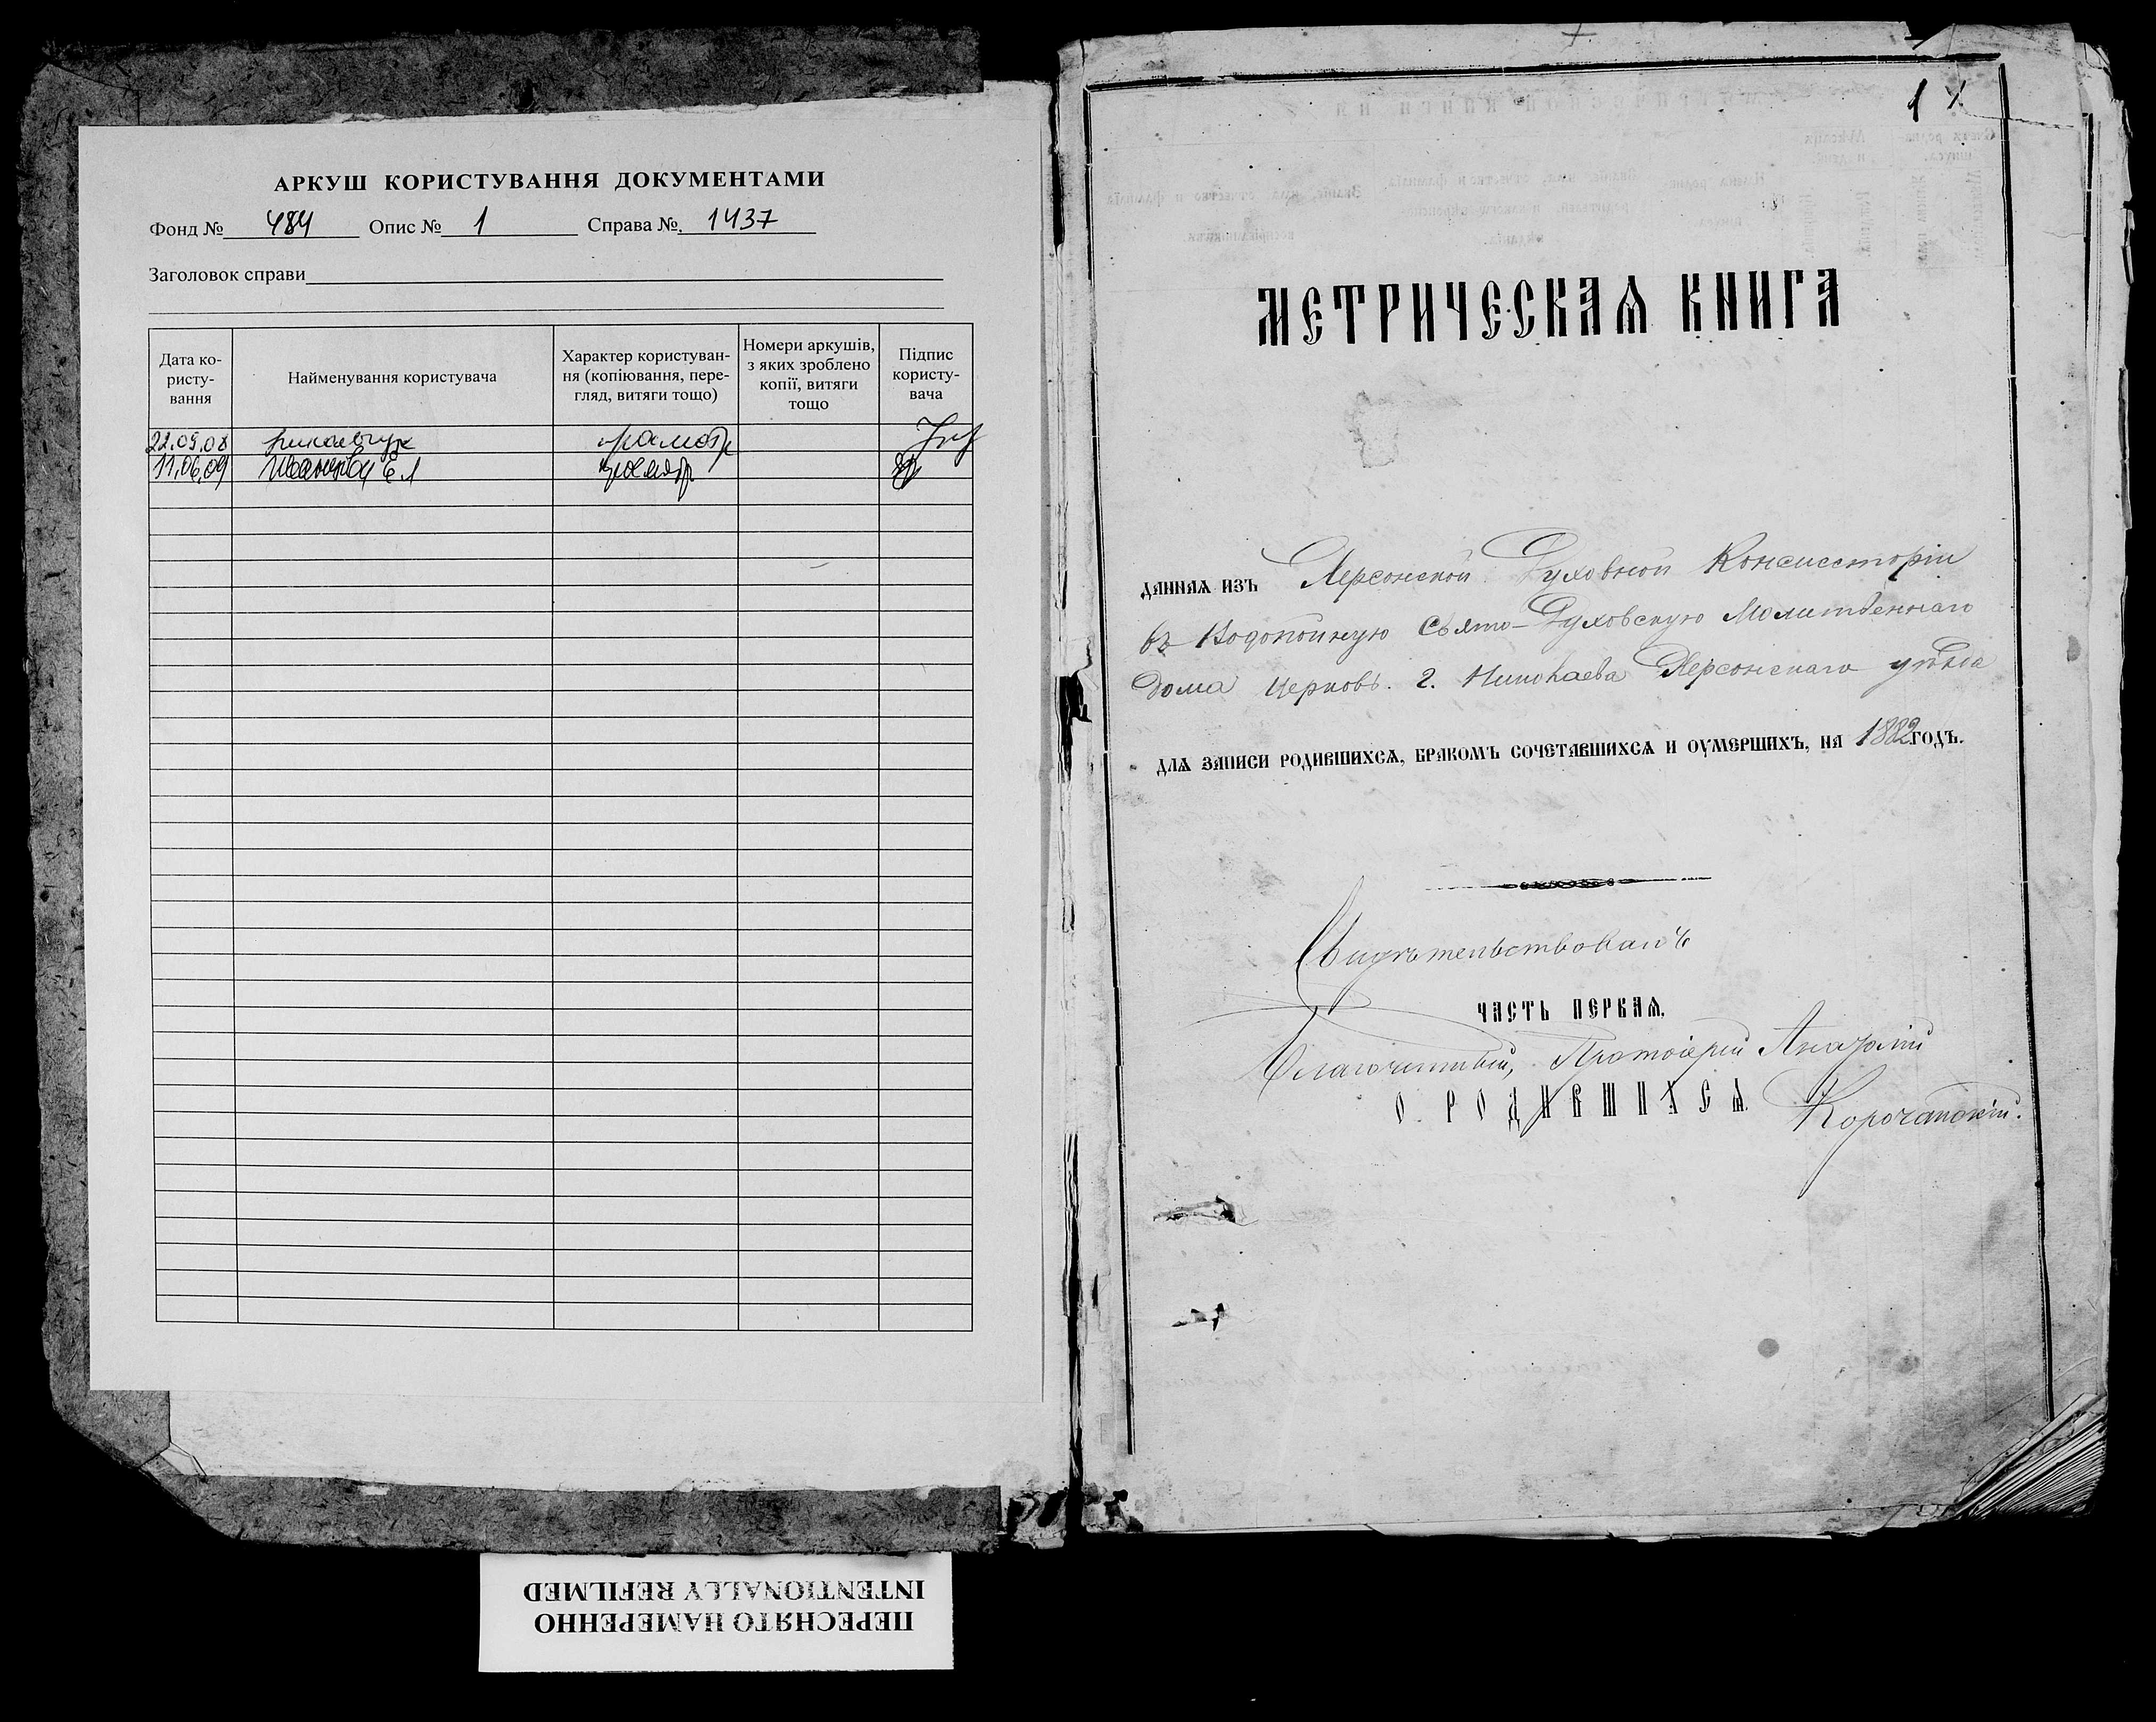 АРКУШ КОРИСТУВАННЯ ДОКУМЕНТАМИ
Фонд № 484 Опис № 1 Справа №. 1437
Заголовок справи
Дата ко-
ристу-
вання
Найменування користувача
Характер користуван-
ня (копіювання, пере-
гляд, витяги тощо)
Номери аркушів,
з яких зроблено
копії, витяги
тощо
Підпис
користу-
вача
22.05.08
11.06.09
ПЕРЕСНЯТО НАМЕРЕННО
INTENTIONALLY REFILMED
1
МЕТРИЧЕСКАѦ КНИГА
даннаѧ изъ Херсонской Духовной Консисторіи
въ Водопойную Свято-Духовскую Молитвеннаго
дома Церковь. г. Николаева Херсонскаго уѣзда
длѧ записи родившихсѧ, бракомъ сочетавшихсѧ и оумершихъ, на 1882 годъ.
Свидѣтельствовалъ
ЧАСТЬ ПЕРВАѦ,
Благочинный, Протоіерей
О РОДИВШИХСѦ